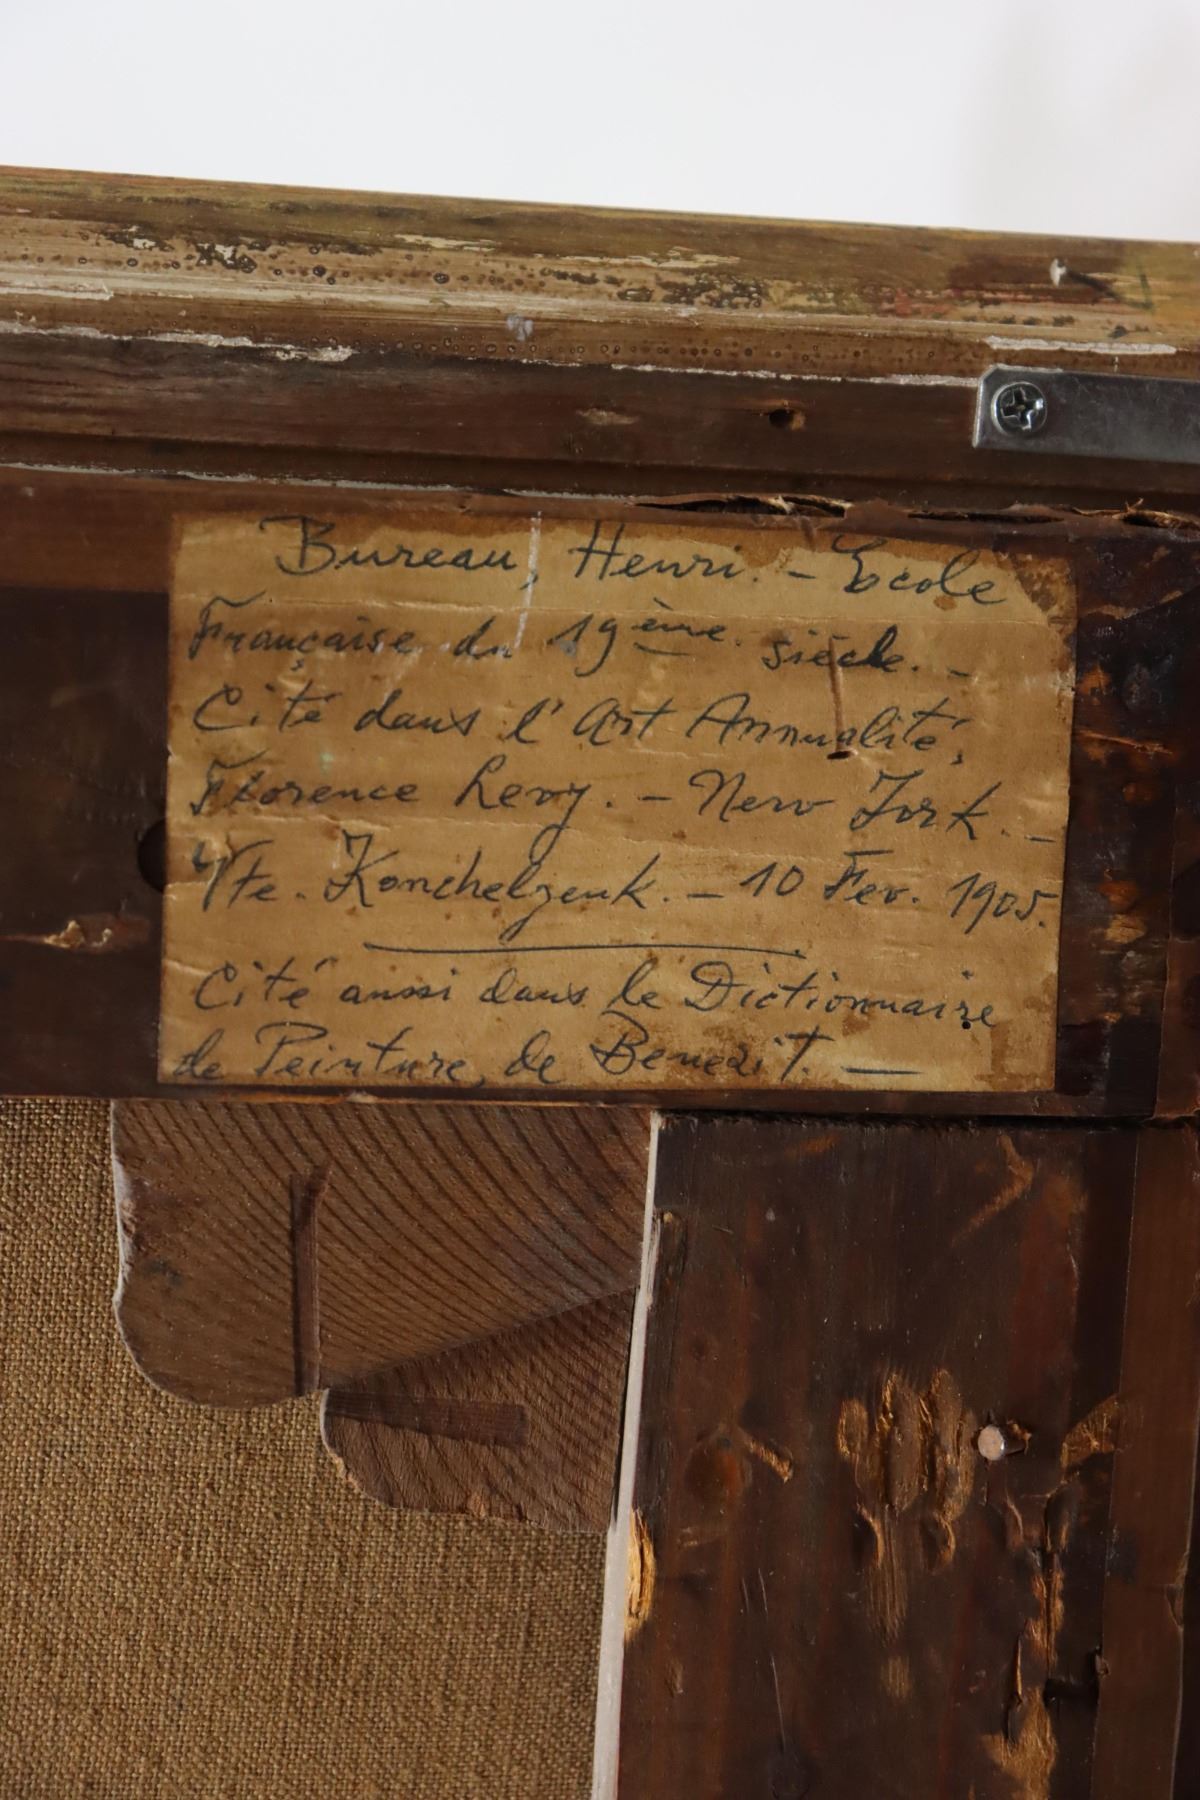 Bureau, Henri. - Ecole
Française du 19ème siècle. -
Cité dans l'Art Annualité,
Florence Levy. - New York. -
Vte. Konchelzenk. - 10 Fev. 1905.
Cité aussi dans le Dictionnaire
de Peinture, de Benezit. -